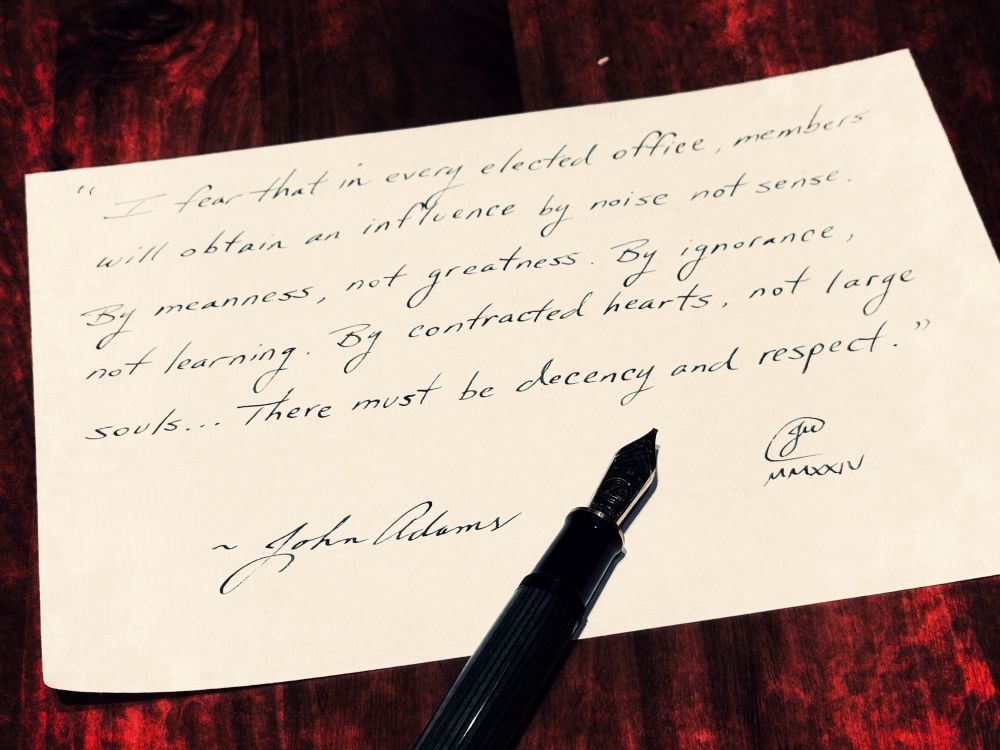 “ I fear that in every elected office, members
will obtain an influence by noise not sense.
By meanness, not greatness. By ignorance,
not learning. By contracted hearts, not large
souls... There must be decency and respect.”
~ John Adams
MMXXIV